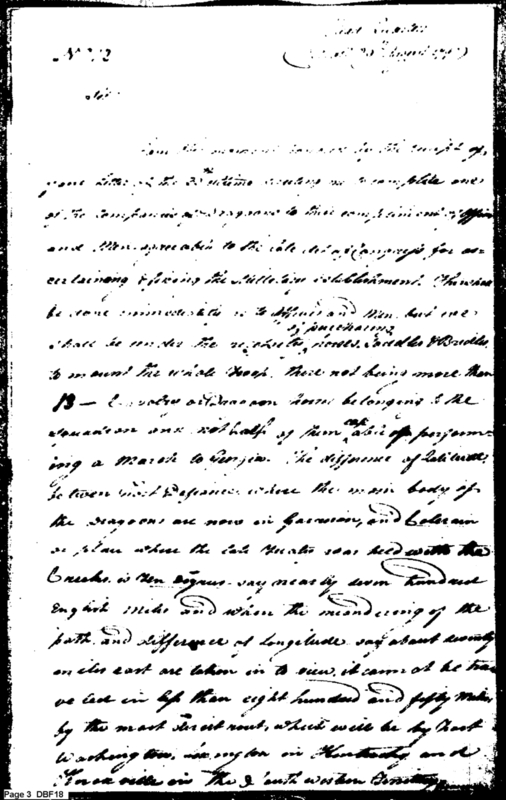 Head Quarters
Sir
I am this moment honored by the receipt of
your letter of the Ultimo directing me to complete one
of the companies of Dragoons to their compliment of Officers
and Men agreeable to the late Act of Congress for as-
certaining & fixing the Military establishment. This shall
be done immediately as to Officers and Men, but we
of purchasing
shall be under the necessity horses, Saddles & Bridles,
to mount the whole troop, there not being more than
13 — horses belonging to the
Squadron and not half of them capable of perform-
ing a March to Georgia. The difference of Latitude,
between Fort Defiance where the main body of
the Dragoons are now in Garrison, and Colerain
or place where the late Treaty was held with the
Creeks, is ten degrees, say nearly seven hundred
English miles and when the meandering of the
path, and difference of longitude say about seventy
miles east are taken in to view, it cannot be tra-
veled in less than eight hundred and fifty miles,
by the most direct rout, which will be by Fort
Washington, Lexington in Kentucky and
Knoxville in the South western Territory
Page 3 DBF18